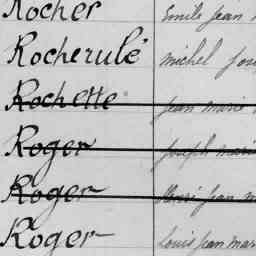 Rocher Emile Jean
Rocherulé michel
Rochette Jean marie
Roger Joseph marie
Roger Jean
Roger Louis Jean mar